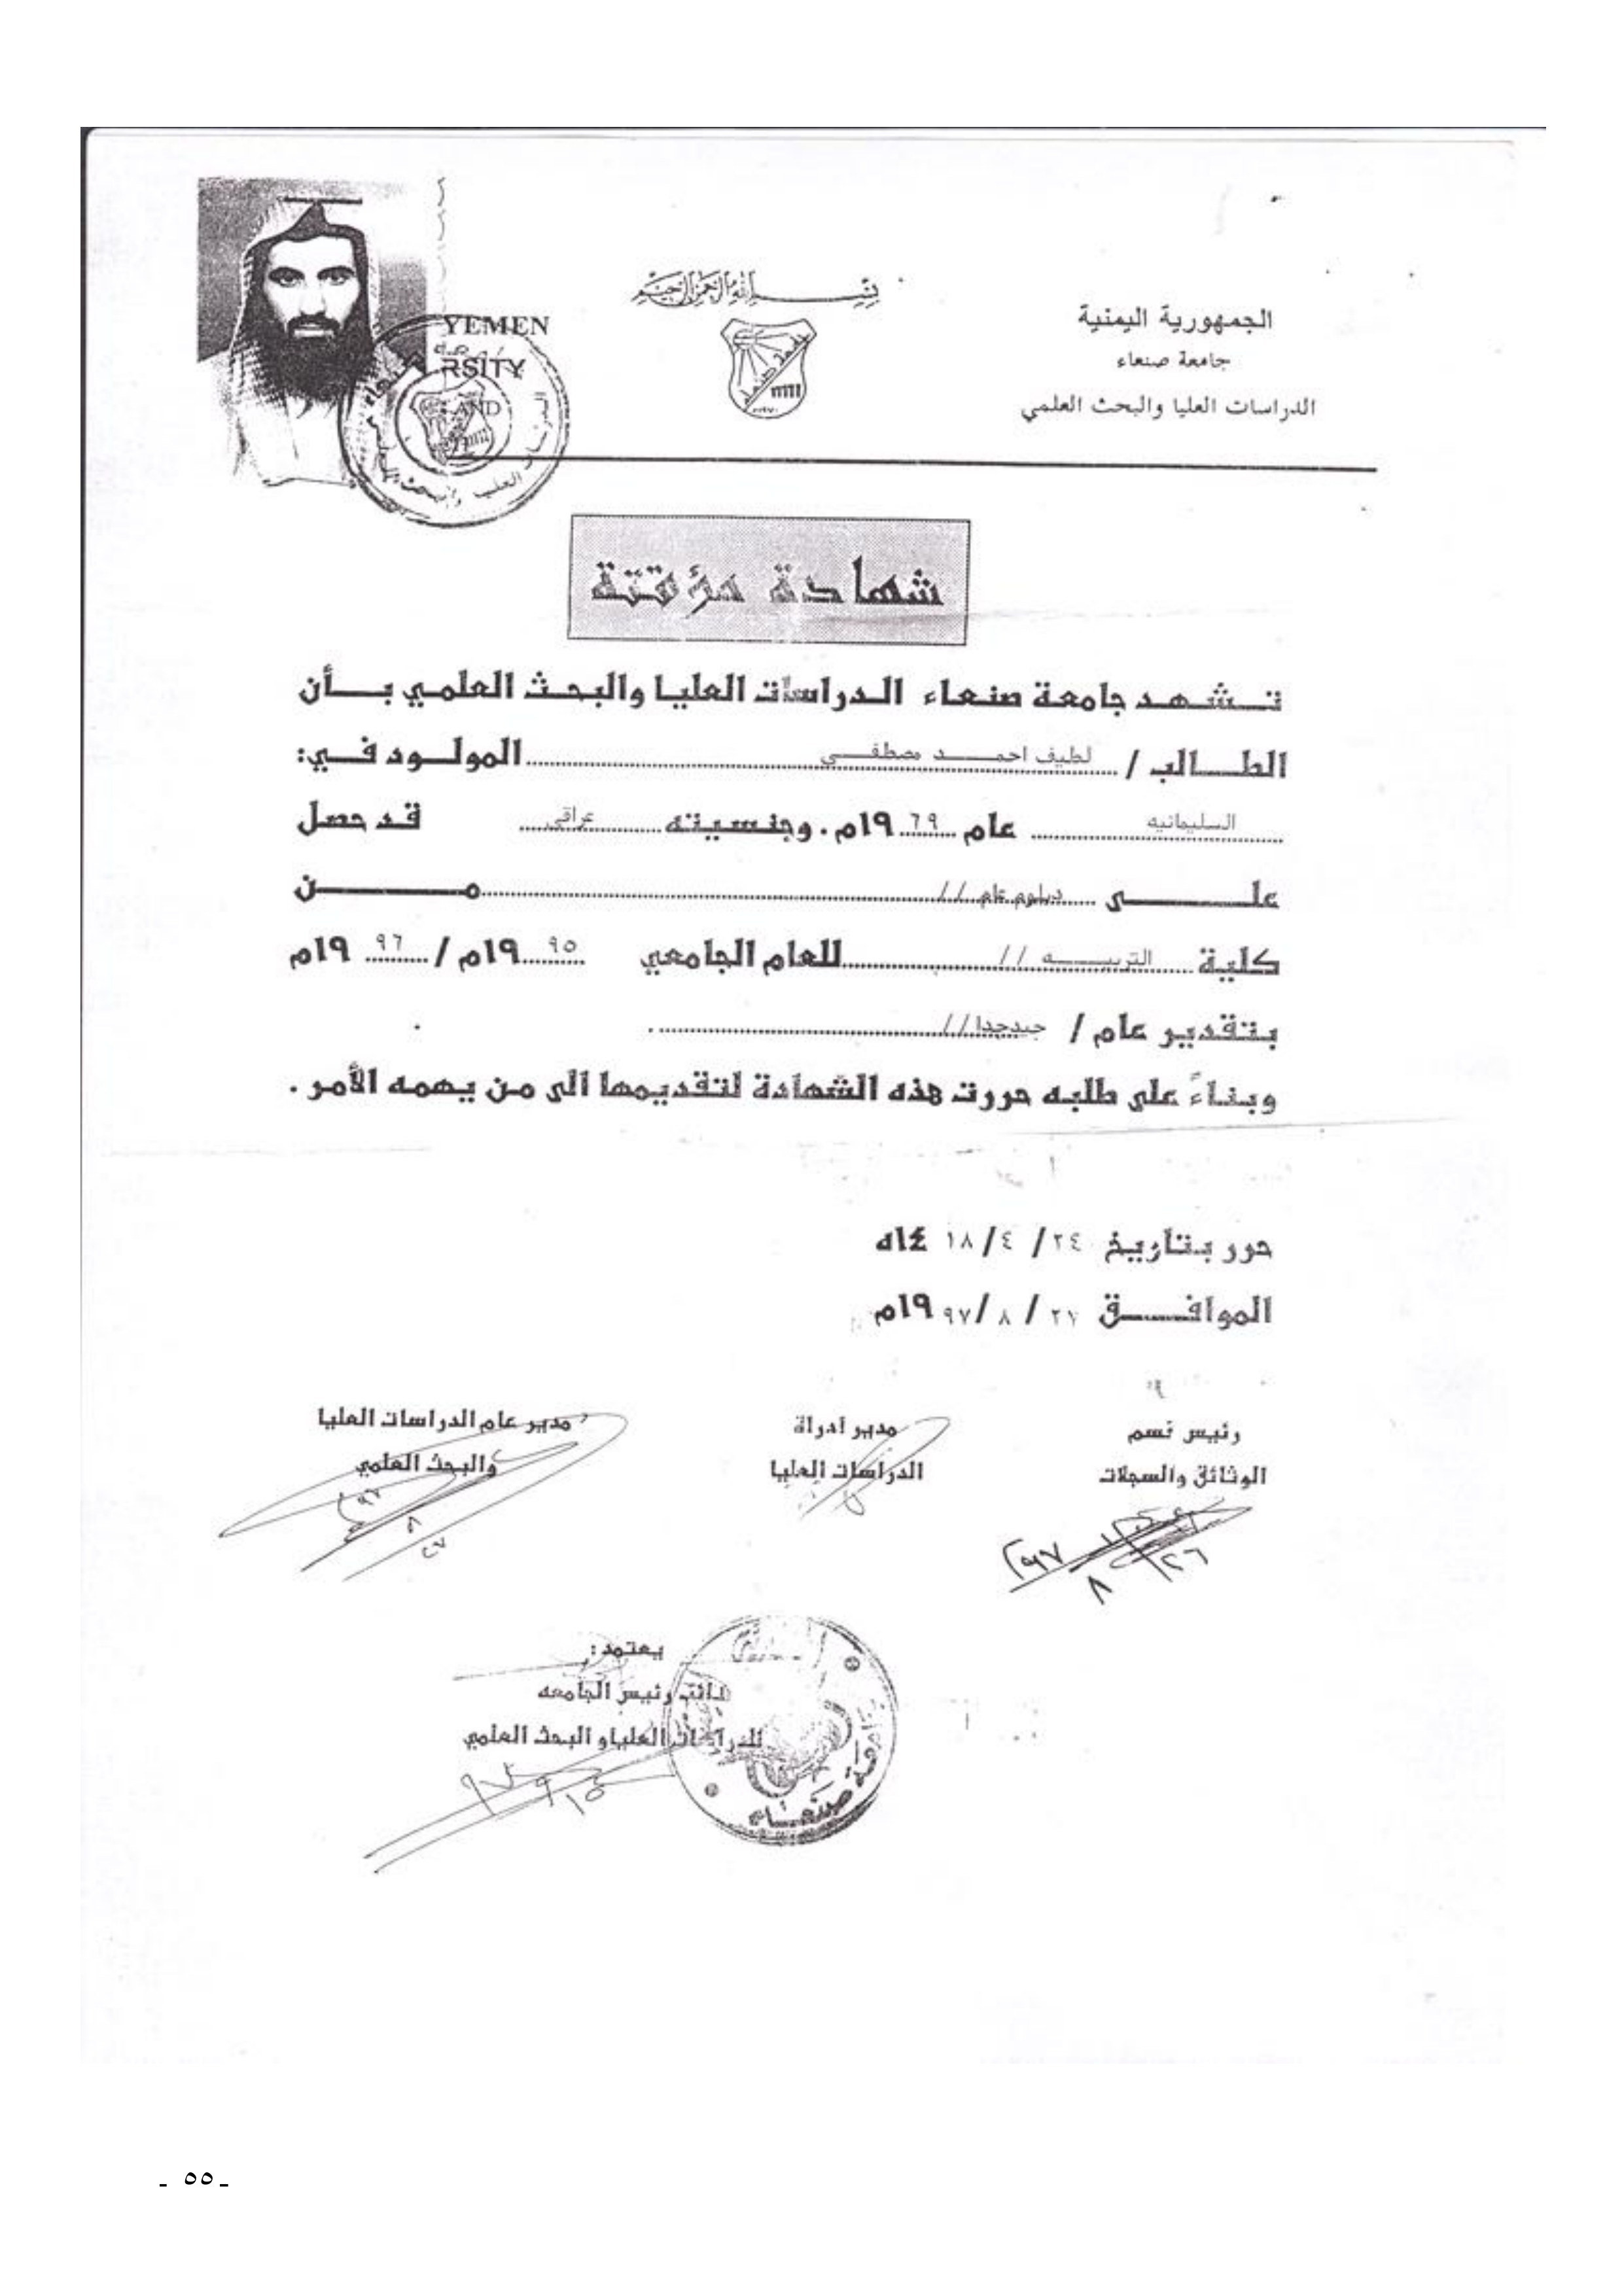 الجمهورية اليمنية
جامعة صنعاء
الدراسات العليا والبحث العلمي
بسم الله الرحمن الرحيم
جامعة صنعاء
YEMEN
RSITY
AND
شهادة مؤقتة
تشهد جامعة صنعاء الدراسات العليا والبحث العلمي بأن
الطالب / لطيف احمد مصطفى المولود في:
السليمانيه عام ١٩٦٩م. وجنسيته عراقي قد حصل
على دبلوم عام // من
كلية التربيه // للعام الجامعي ١٩٩٥م / ١٩٩٦م
بتقدير عام / جيدجدا // .
وبناءً على طلبه حررت هذه الشهادة لتقديمها الى من يهمه الأمر .
حرر بتاريخ ٢٤ / ٤ / ١٤١٨ه
الموافق ٢٧ / ٨ / ١٩٩٧م
رئيس قسم
الوثائق والسجلات
٢٦ / ٨ / ٩٧
مدير ادراة
الدراسات العليا
مدير عام الدراسات العليا
والبحث العلمي
يعتمد:
نائب رئيس الجامعه
للدراسات العليا والبحث العلمي
جامعة صنعاء
- ٥٥ -